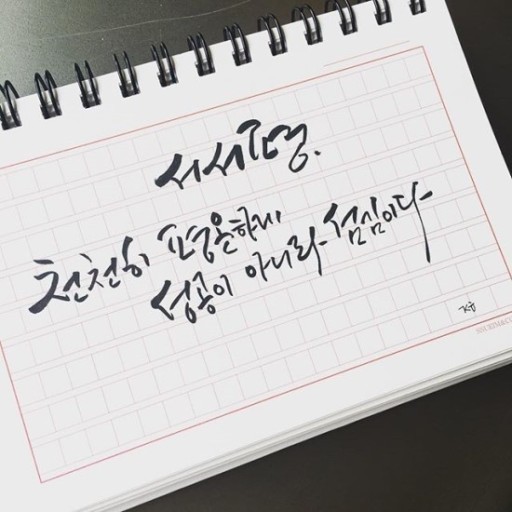 서서평.
천천히 평온하게
성공이 아니라 섬김이다